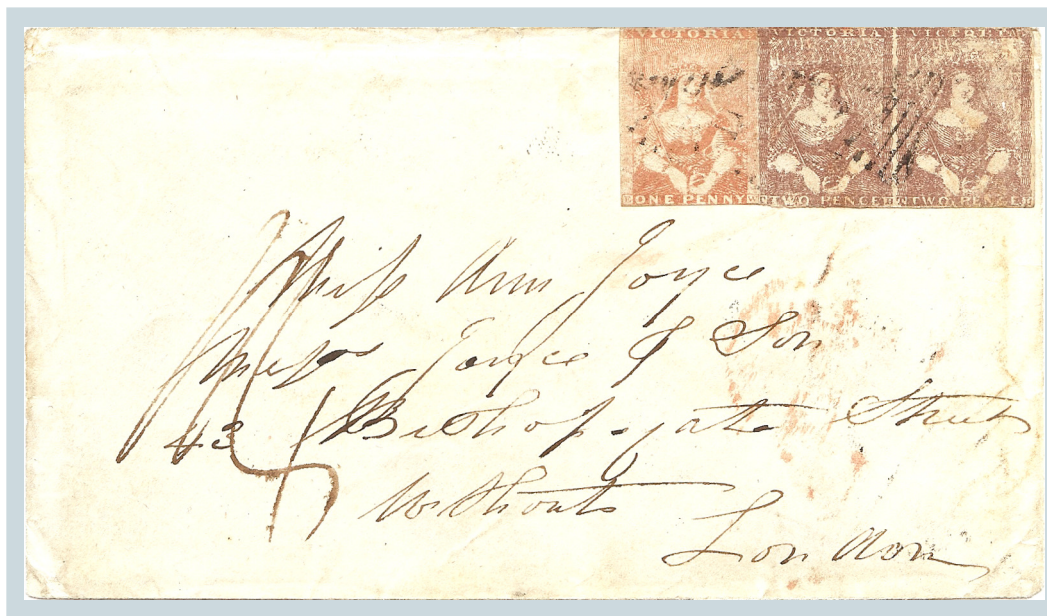 VICTORIA VICTORIA VICTORIA
ONE PENNY TWO PENCE TWO PENCE
Miss Ann Joyce
Messrs Joyce & Son
43 Bishopsgate Street
Without
London